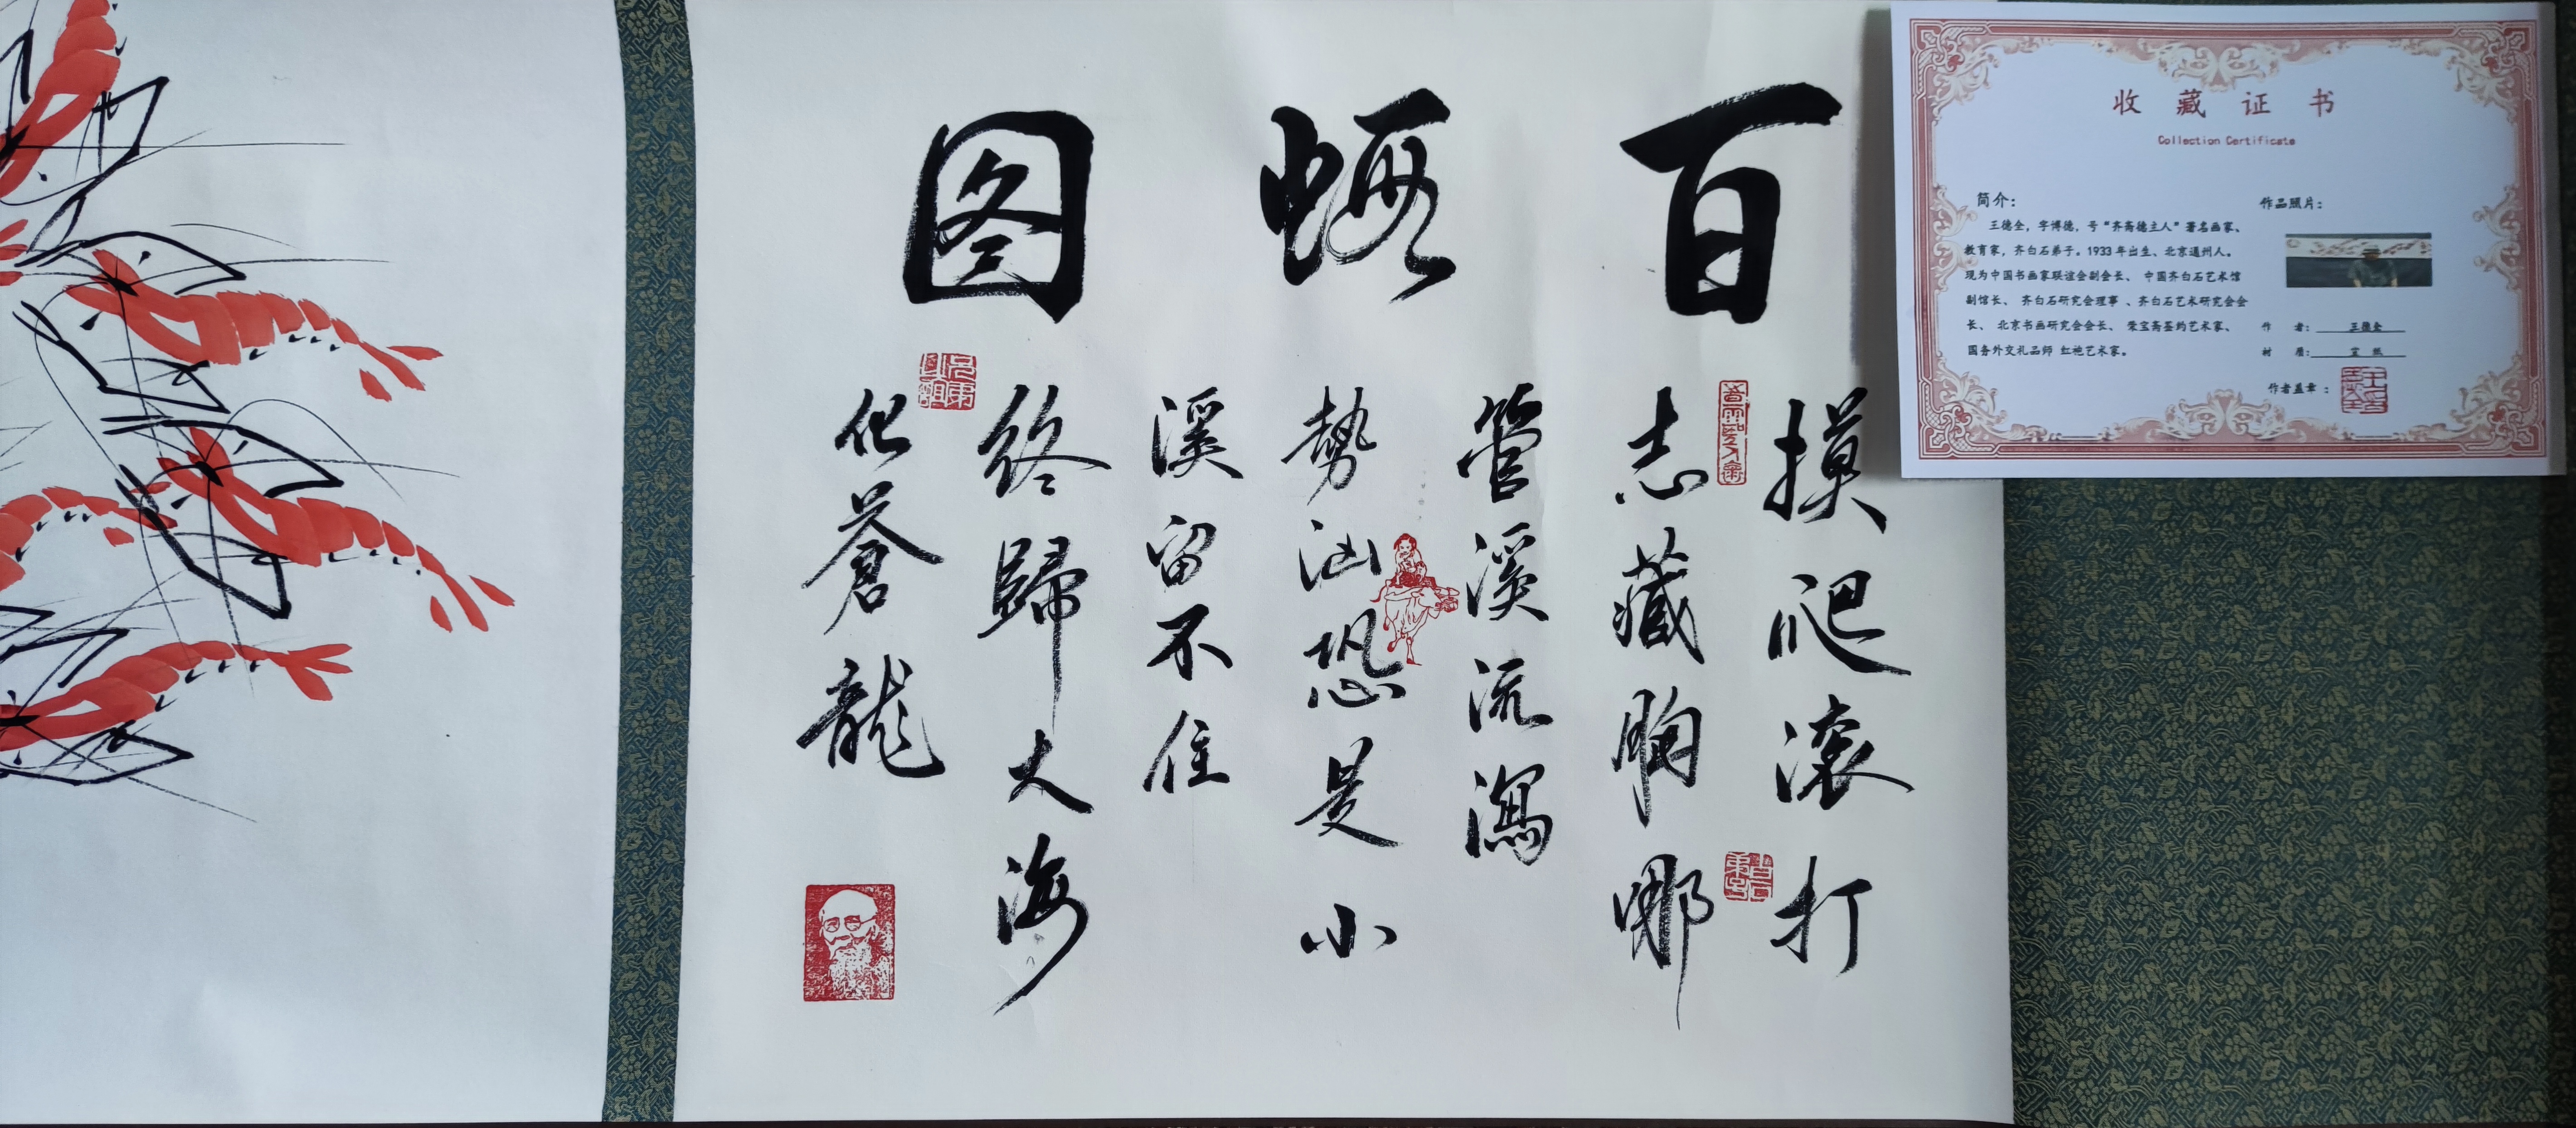 百蝦图
摸爬滚打
志藏胸哪
管溪流瀉
勢汹恐是小
溪留不住
终歸大海
化蒼龍
收藏证书
Collection Certificate
简介：
王德全，字博德，号“齐斋德主人”著名画家、
教育家，齐白石弟子。1933年出生、北京通州人。
现为中国书画家联谊会副会长、 中国齐白石艺术馆
副馆长、 齐白石研究会理事 、齐白石艺术研究会会
长、 北京书画研究会会长、 荣宝斋签约艺术家、
国务外交礼品师 红袍艺术家。
作品照片：
作 者：王德全
材 质：宣 纸
作者盖章：